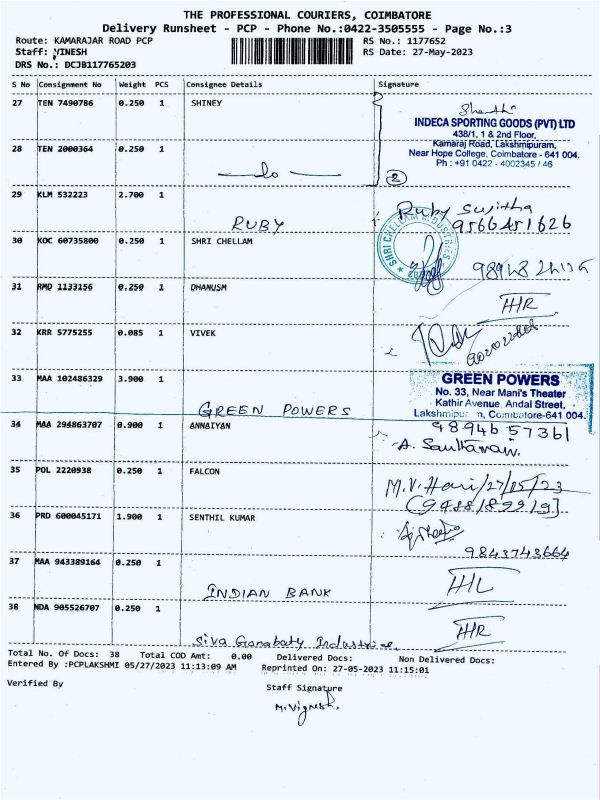 THE PROFESSIONAL COURIERS, COIMBATORE
Delivery Runsheet - PCP - Phone No.:0422-3505555 - Page No.:3
Route: KAMARAJAR ROAD PCP
RS No.: 1177652
Staff: VINESH
RS Date: 27-May-2023
DRS No.: DCJB117765203
S No Consignment No Weight PCS Consignee Details Signature
27 TEN 7490786 0.250 1 SHINEY
INDECA SPORTING GOODS (PVT) LTD
438/1, 1 & 2nd Floor,
Kamaraj Road, Lakshmipuram,
Near Hope College, Coimbatore - 641 004.
Ph : +91 0422 - 4002345 / 46
28 TEN 2000364 0.250 1
2
29 KLM 532223 2.700 1
RUBY
Ruby Sujitha
9566451626
30 KOC 60735800 0.250 1 SHRI CHELLAM
SHRI CHELLAM INDUSTRIES
31 RMD 1133156 0.250 1 DHANUSM
32 KRR 5775255 0.085 1 VIVEK
33 MAA 102486329 3.900 1
GREEN POWERS
GREEN POWERS
No. 33, Near Mani's Theater
Kathir Avenue, Andal Street,
Coimbatore-641 004.
34 MAA 294863707 0.900 1 ANNAIYAN
9894657361
35 POL 2220938 0.250 1 FALCON
M.V. Hari/27/05/23
36 PRD 600045171 1.900 1 SENTHIL KUMAR
9843743664
37 MAA 943389164 0.250 1
INDIAN BANK
38 NDA 905526707 0.250 1
Siva Ganabaty Industries
Total No. Of Docs: 38 Total COD Amt: 0.00 Delivered Docs: Non Delivered Docs:
Entered By :PCPLAKSHMI 05/27/2023 11:13:09 AM Reprinted On: 27-05-2023 11:15:01
Verified By
Staff Signature
M. Vignesh.